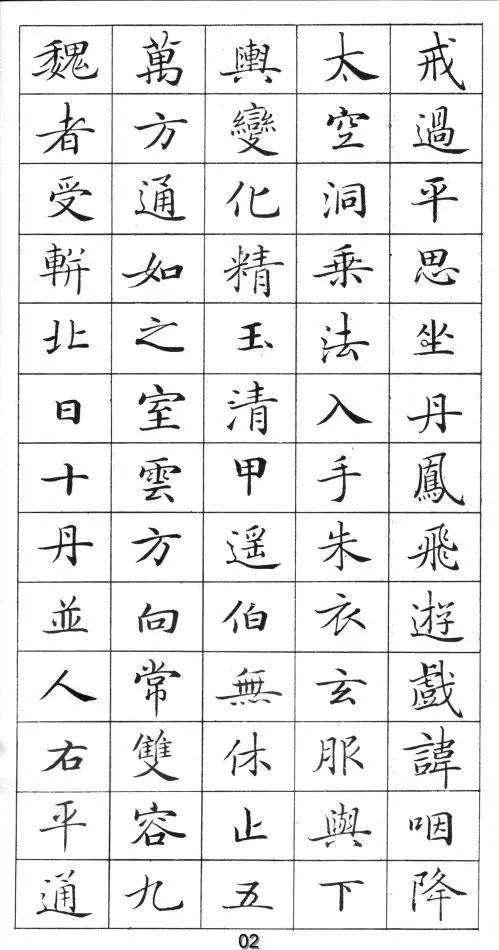 戒過平思坐丹鳳飛遊戲諱咽降
太空洞乗法入手朱衣玄服與下
輿變化精玉清甲遥伯無休止五
萬方通如之室雲方向常雙容九
魏者受輧北日十丹並人右平通
02